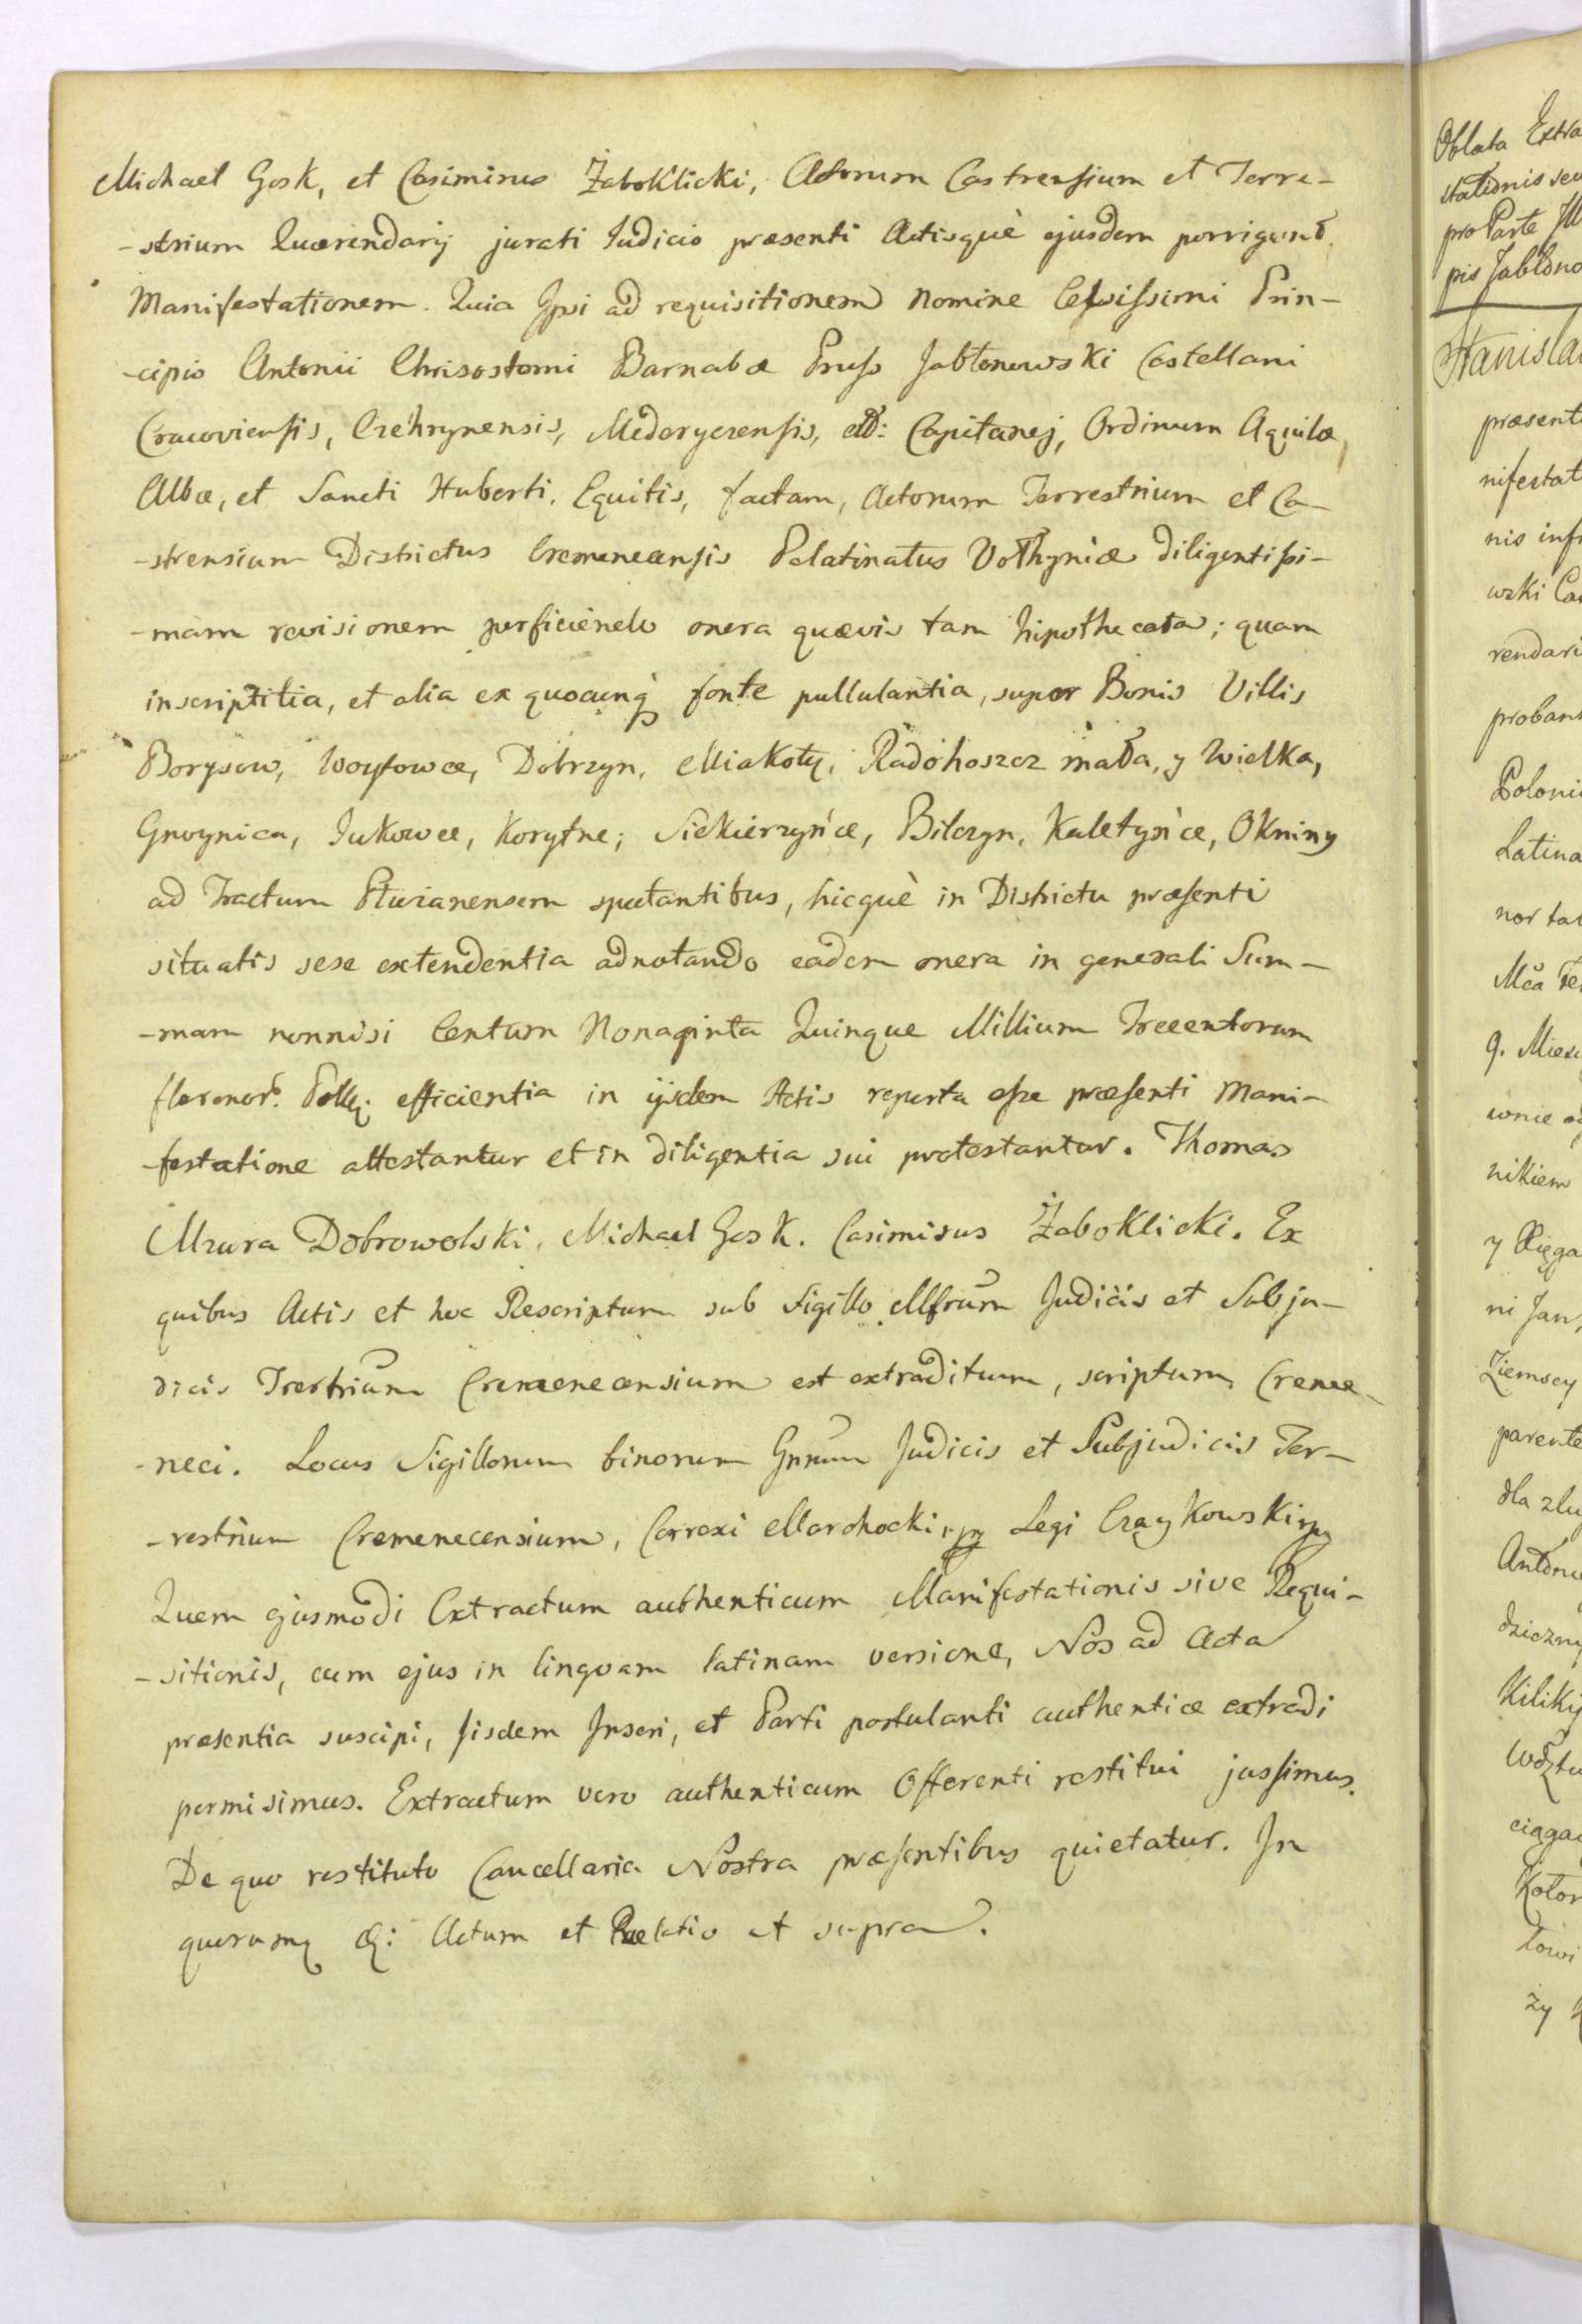 Michael Gosk, et Casimirus Żaboklicki, Actorum Castrensium et Terre-
-strium Quærendarij jurati Judicio præsenti Actisquè ejusdem porrigunt
Manifestationem. Quia Ipsi ad requisitionem Nomine Celsissimi Prin-
-cipis Antonii Chrisostomi Barnabæ Pruss Jabłonowski Castellani
Cracoviensis, Czehrynensis, Mederycensis, ett: Capitanej, Ordinum Aquilæ
Albæ, et Sancti Huberti, Equitis, factam, Actorum Terrestrium et Ca-
-strensium Districtus Cremenecensis Palatinatus Volhyniæ diligentissi-
-mam revisionem perficiendo onera quævis tam hipothecata; quam
inscriptitia, et alia ex quocunq fonte pullulantia, super Bonis Villis
Borysow, Woytowce, Dobrzyn, Miakoty, Radohoszcz mała, y Wielka,
Gnoynica, Jukowce, Korytne; Siekierzyńce, Bilczyn, Kuletyńce, Okniny
ad Tractum Pluzanensem spectantibus, hicquè in Districtu præsenti
situatis sese extendentia adnotando eadem onera in generali Sum-
-mam nonnisi Centum Nonaginta Quinque Millium Trecentorum
florenor. Pollq. efficientia in ijsdem Actis reperta esse præsenti Mani-
-festatione attestantur et in diligentia sui protestantur. Thomas
Mzura Dobrowolski, Michael Gosk. Casimirus Żaboklicki. Ex
quibus Actis et hoc Rescriptum sub Sigillo Mfrum Judicis et Subju-
dicis Trestrium Cremenecensium est extraditum, scriptum Creme-
-neci. Locus Sigillorum binorum Gnrum Judicis et Subjudicis Ter-
-restrium Cremenecensium, Correxi Marchocki, mp Legi Czaykowski mp
Quem ejusmodi Extractum authenticum Manifestationis sive Requi-
-sitionis, cum ejus in linguam latinam versione, Nos ad Acta
præsentia suscipi, Iisdem Inseri, et Parti postulanti authentice extradi
permisimus. Extractum vero authenticum Offerenti restitui jussimus.
De quo restituto Cancellaria Nostra præsentibus quietatur. In
quorum q: Actum et Relatio ut supra.
Oblata Extra
stationis seu
pro Parte Ill
pis Jabłono
Stanisla
præsent
nifestat
nis infr
wski Ca
rendari
proban
Poloni
Latina
nor ta
Mca
9. Mies
wnie
nikiem
y Xięga
ni Jan,
Ziemscy
parente
dla zlu
Antoni
dziczny
Kiliki
ciąga
Koton
zy